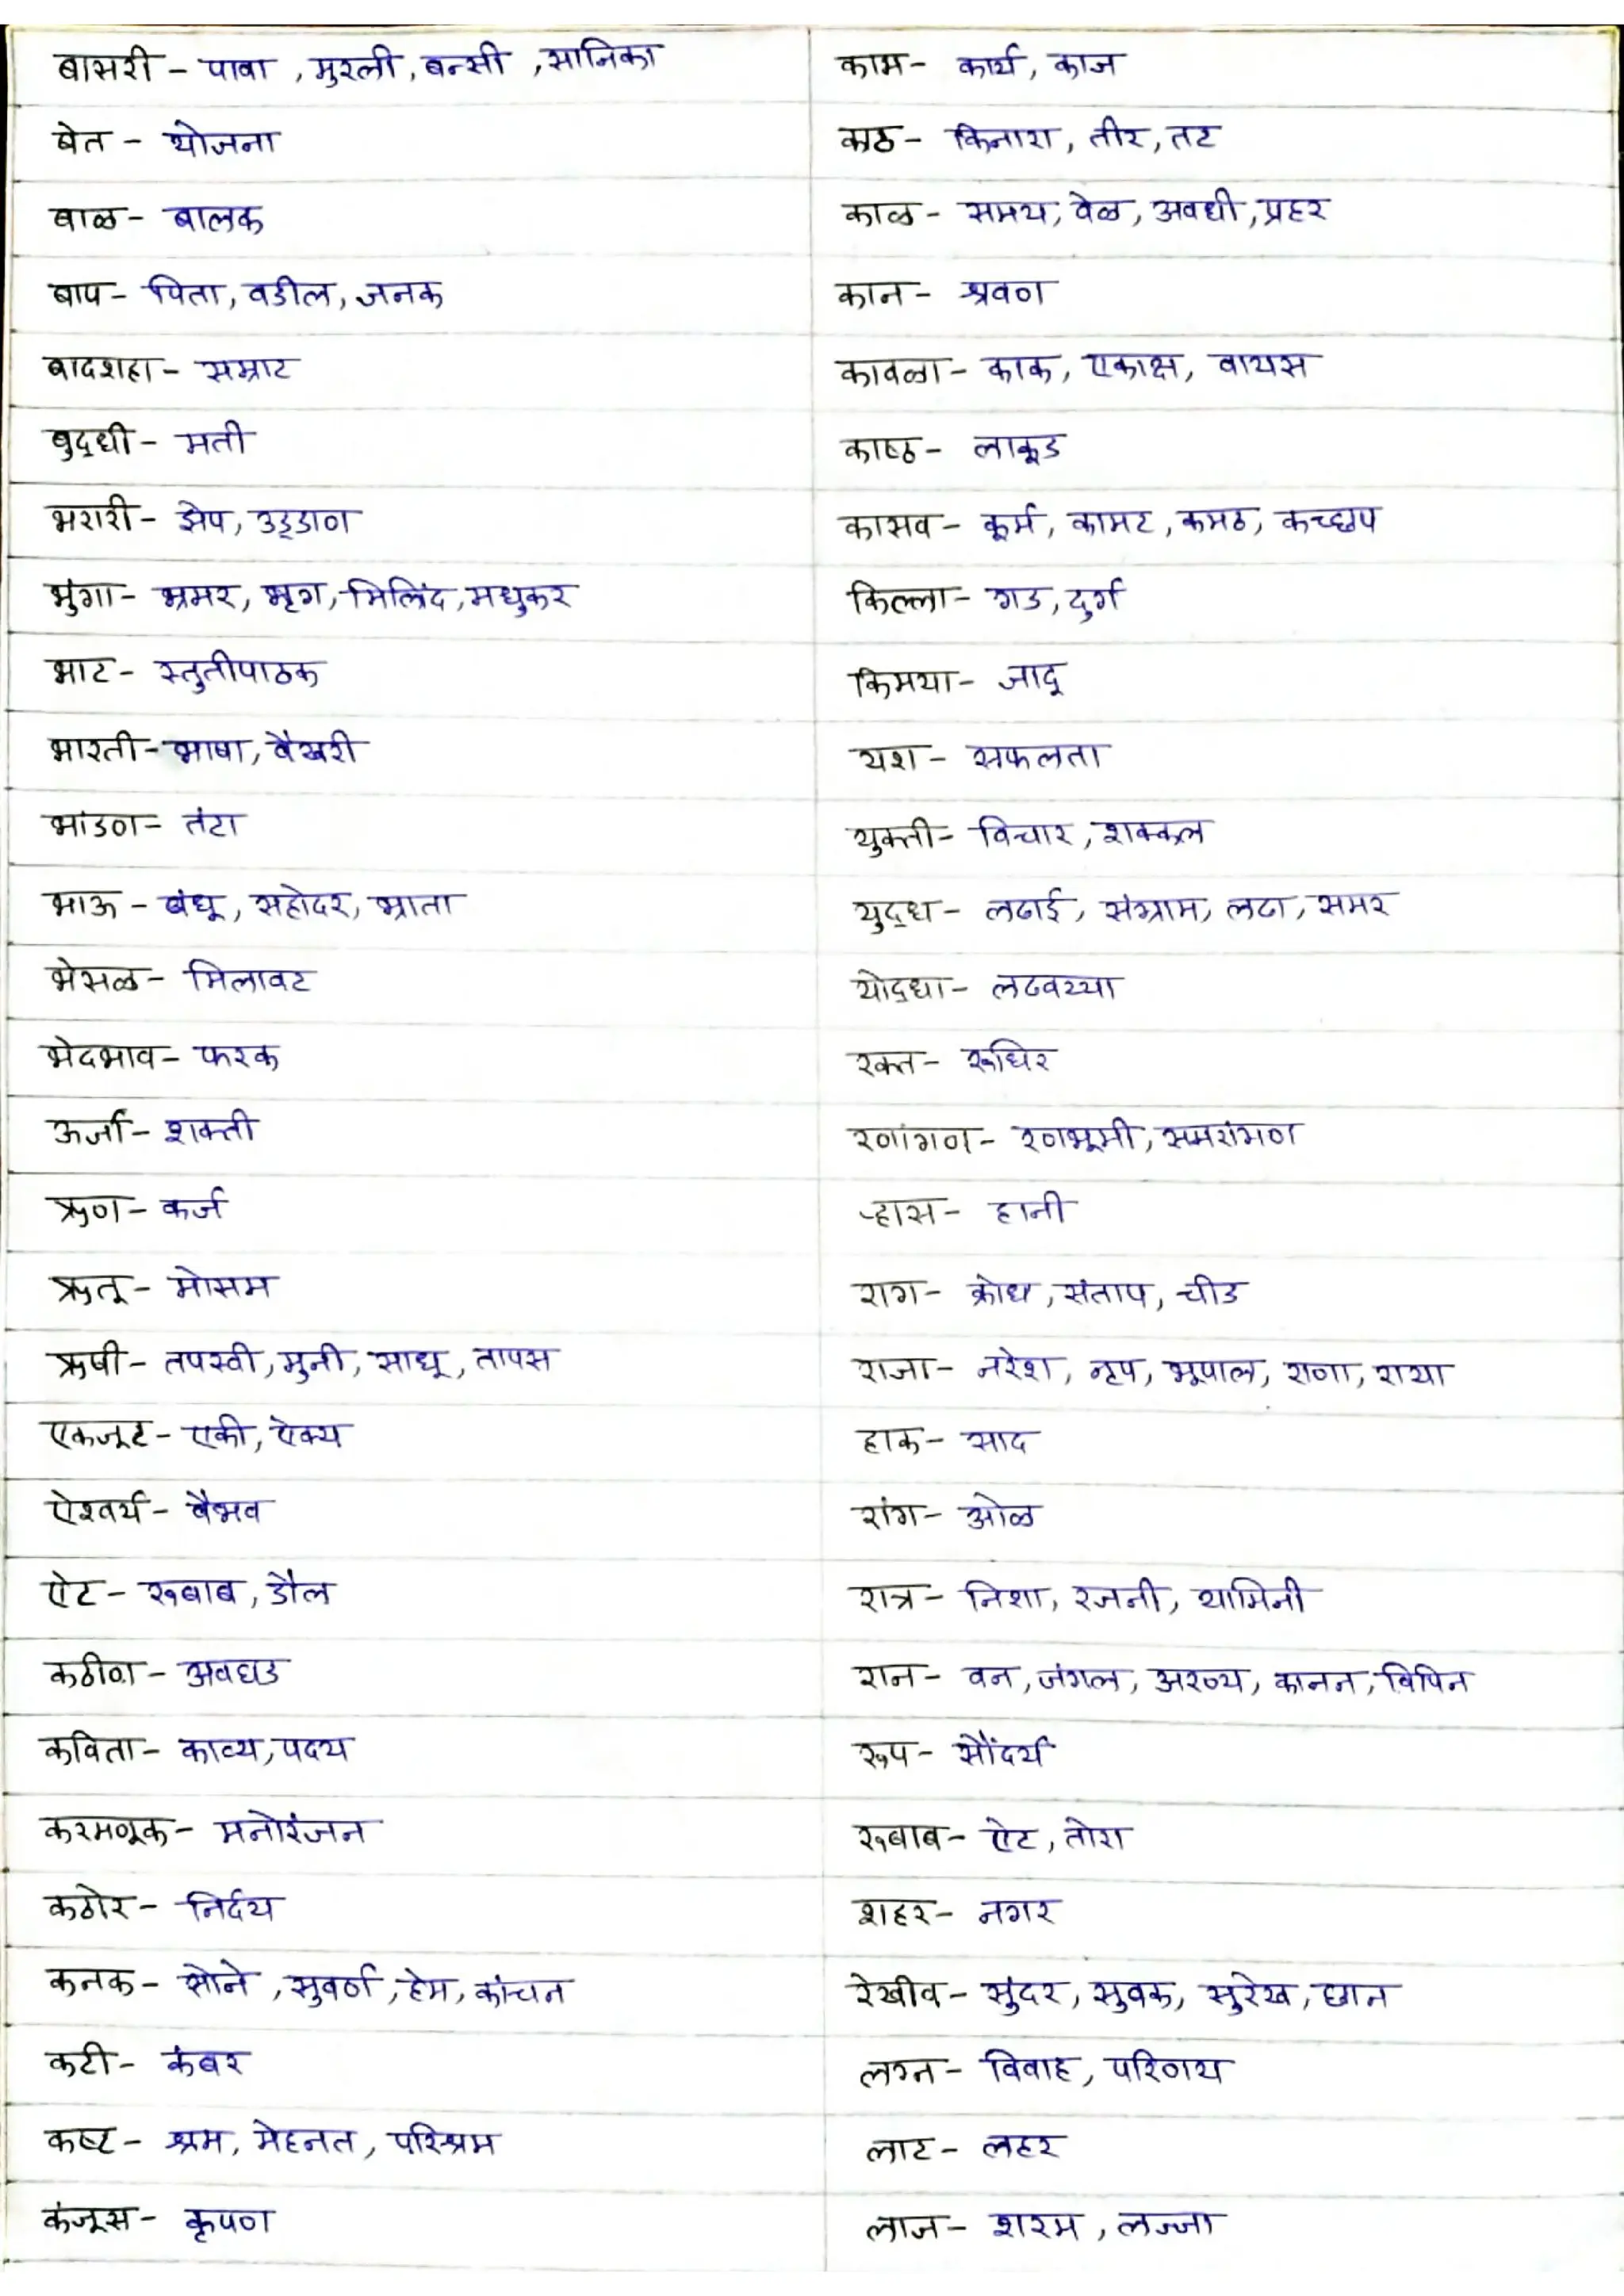 बासरी - पावा , मुरली, बन्सी , सानिका
बेत - योजना
बाळ - बालक
बाप - पिता, वडील, जनक
बादशहा - सम्राट
बुद्धी - मती
भरारी - झेप, उड्डाण
भुंगा - भ्रमर, भृंग, मिलिंद, मधुकर
भाट - स्तुतीपाठक
भारती - भाषा, वैखरी
भांडण - तंटा
भाऊ - बंधू, सहोदर, भ्राता
भेसळ - मिलावट
भेदभाव - फरक
ऊर्जा - शक्ती
ऋण - कर्ज
ऋतू - मोसम
ऋषी - तपस्वी, मुनी, साधू, तापस
एकजूट - एकी, ऐक्य
ऐश्वर्य - वैभव
ऐट - रूबाब, डौल
कठीण - अवघड
कविता - काव्य, पदय
करमणूक - मनोरंजन
कठोर - निर्दय
कनक - सोने , सुवर्ण , हेम, कांचन
कटी - कंबर
कष्ट - श्रम, मेहनत, परिश्रम
कंजूस - कृपण
काम - कार्य, काज
काठ - किनारा, तीर, तट
काळ - समय, वेळ, अवधी, प्रहर
कान - श्रवण
कावळा - काक, एकाक्ष, वायस
काष्ठ - लाकूड
कासव - कूर्म, कामट, कमठ, कच्छप
किल्ला - गड, दुर्ग
किमया - जादू
यश - सफलता
युक्ती - विचार, शक्कल
युद्ध - लढाई, संग्राम, लढा, समर
योद्धा - लढवय्या
रक्त - रूधिर
रणांगण - रणभूमी, समरांगण
ऱ्हास - हानी
राग - क्रोध, संताप, चीड
राजा - नरेश, नृप, भूपाल, राणा, राया
हाक - साद
रांग - ओळ
रात्र - निशा, रजनी, यामिनी
रान - वन, जंगल, अरण्य, कानन, विपिन
रूप - सौंदर्य
रूबाब - ऐट, तोरा
शहर - नगर
रेखीव - सुंदर, सुबक, सुरेख, छान
लग्न - विवाह, परिणय
लाट - लहर
लाज - शरम , लज्जा